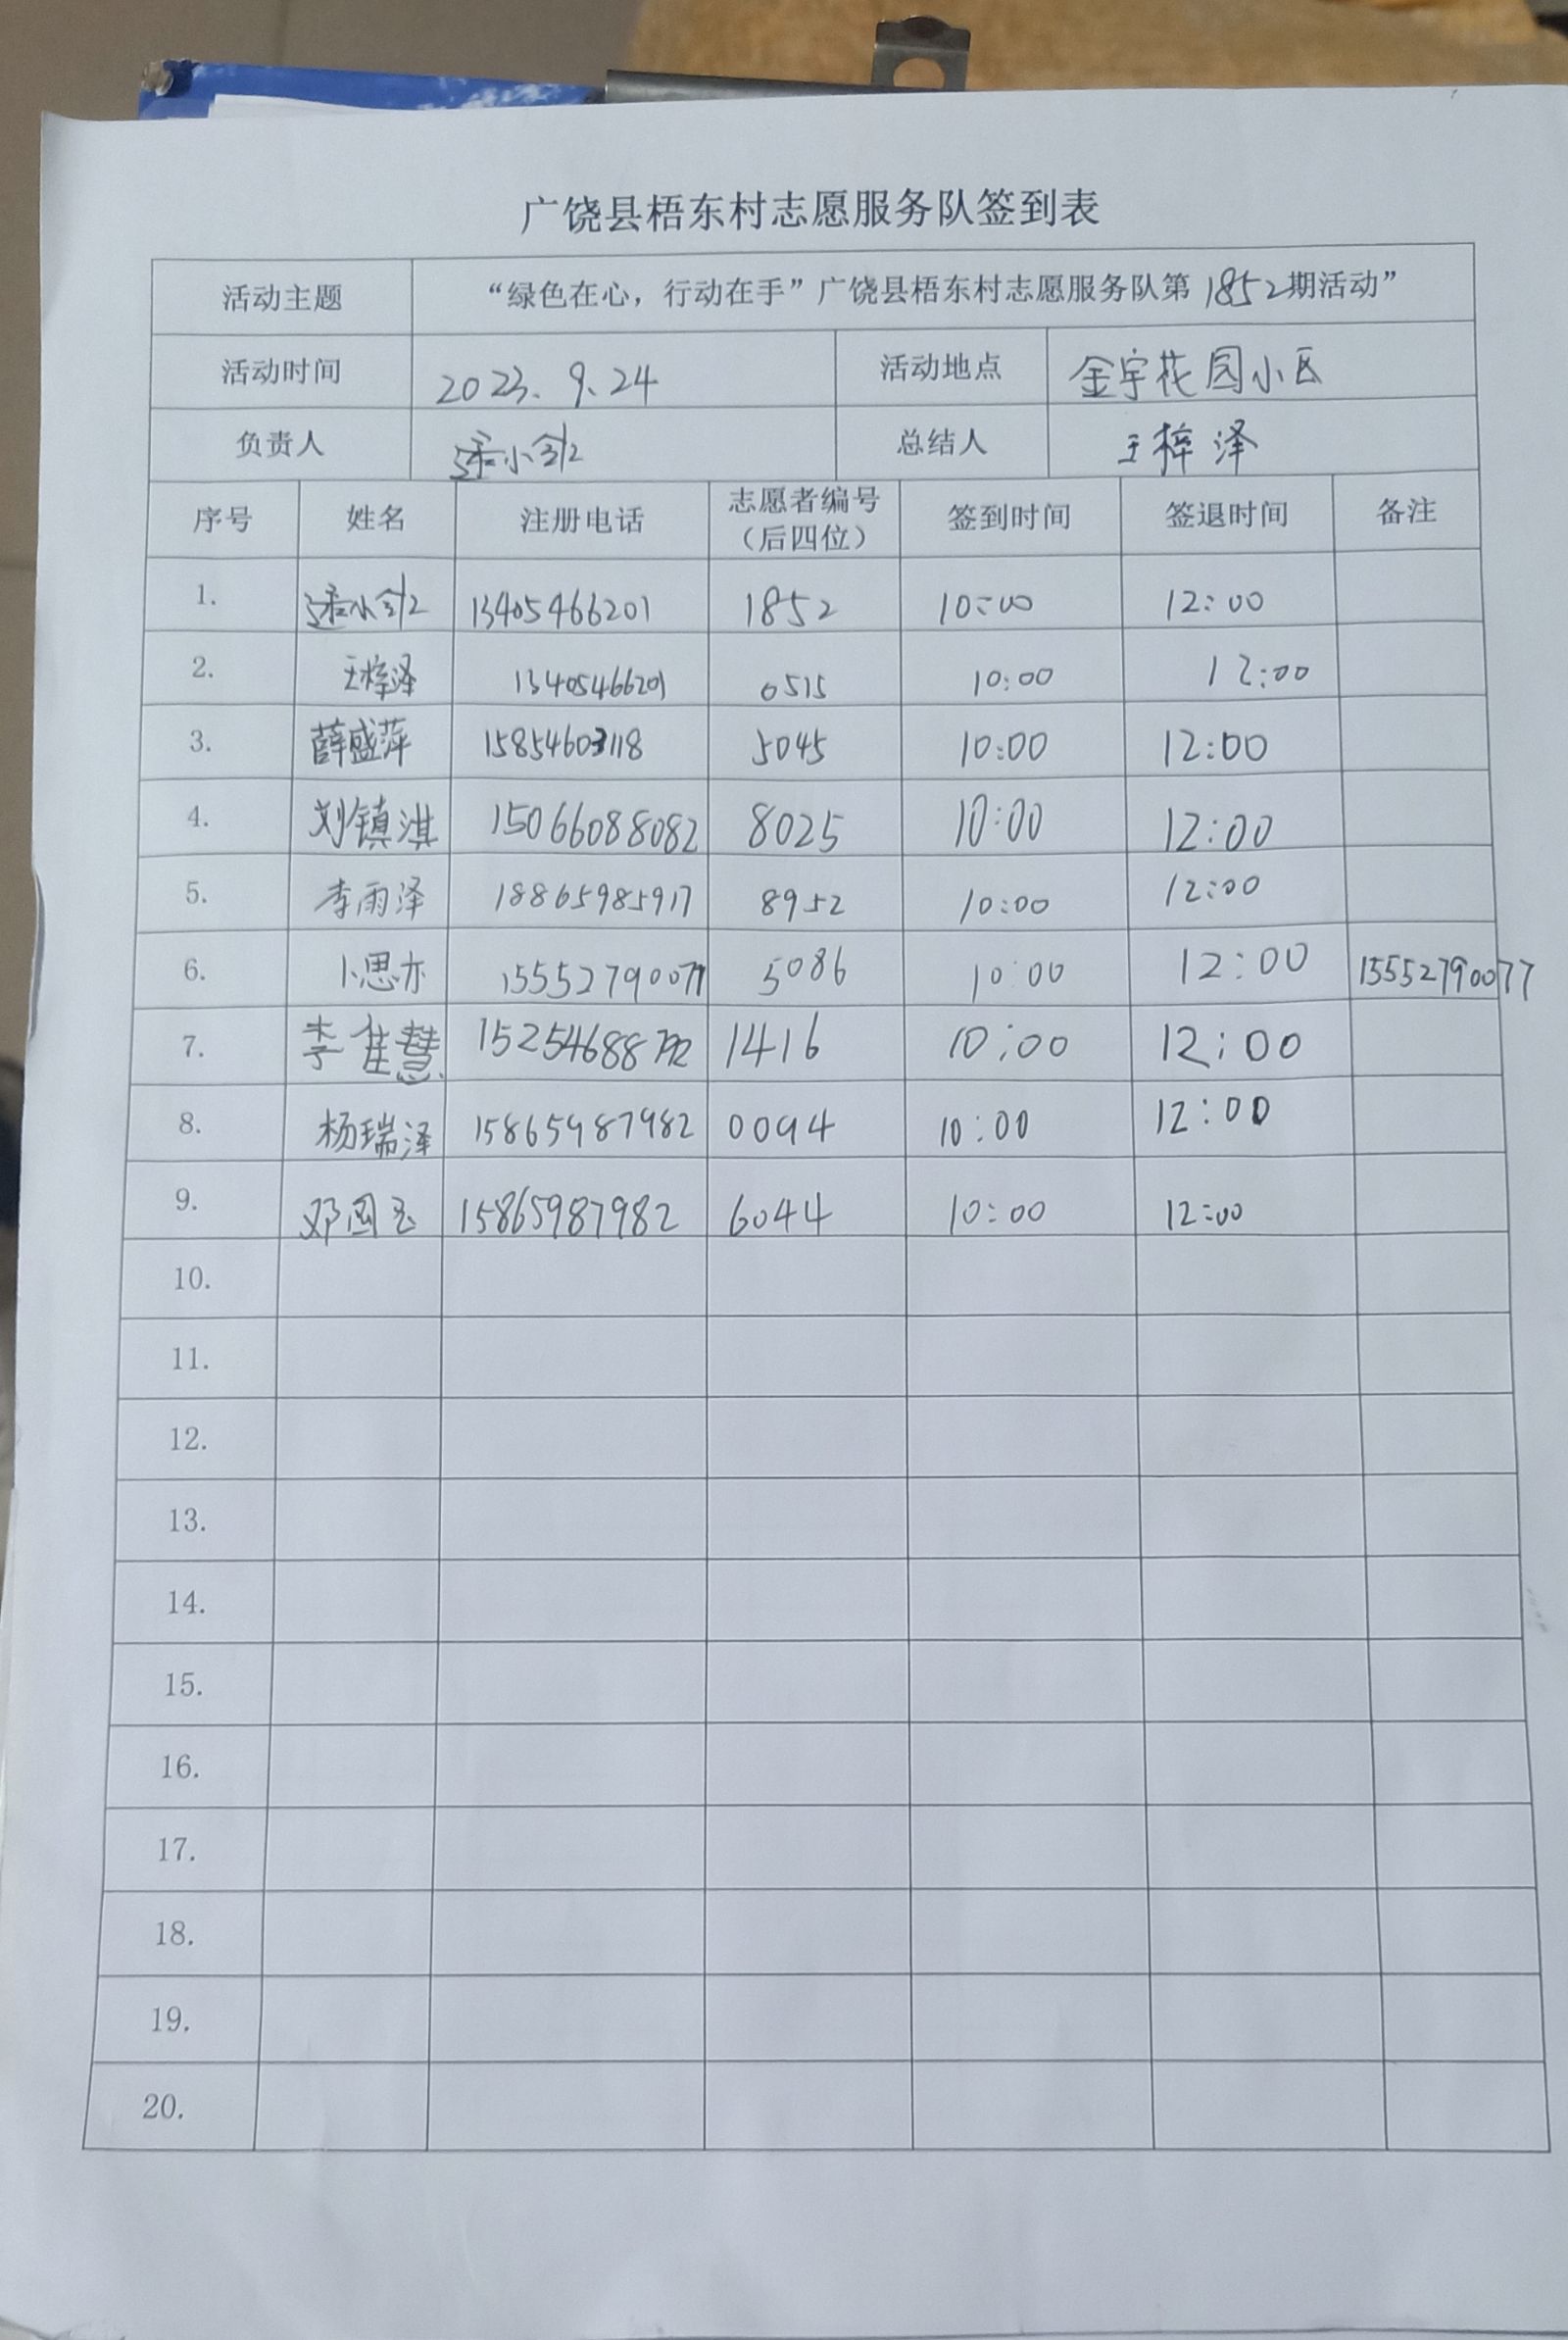 广饶县梧东村志愿服务队签到表
活动主题 “绿色在心，行动在手”广饶县梧东村志愿服务队第1852期活动”
活动时间 2023.9.24 活动地点 金宇花园小区
负责人 小 总结人 王梓泽
序号 姓名 注册电话 志愿者编号（后四位） 签到时间 签退时间 备注
1. 小 13405466201 1852 10:00 12:00
2. 王梓泽 13405466201 0515 10:00 12:00
3. 薛盛萍 15854603118 5045 10:00 12:00
4. 刘镇淇 15066088082 8025 10:00 12:00
5. 李雨泽 18865985917 8952 10:00 12:00
6. 卜思亦 15552790077 5086 10:00 12:00 15552790077
7. 李佳慧 1416 10:00 12:00
8. 杨瑞泽 15865987982 0094 10:00 12:00
9. 邓国玉 15865987982 6044 10:00 12:00
10.
11.
12.
13.
14.
15.
16.
17.
18.
19.
20.